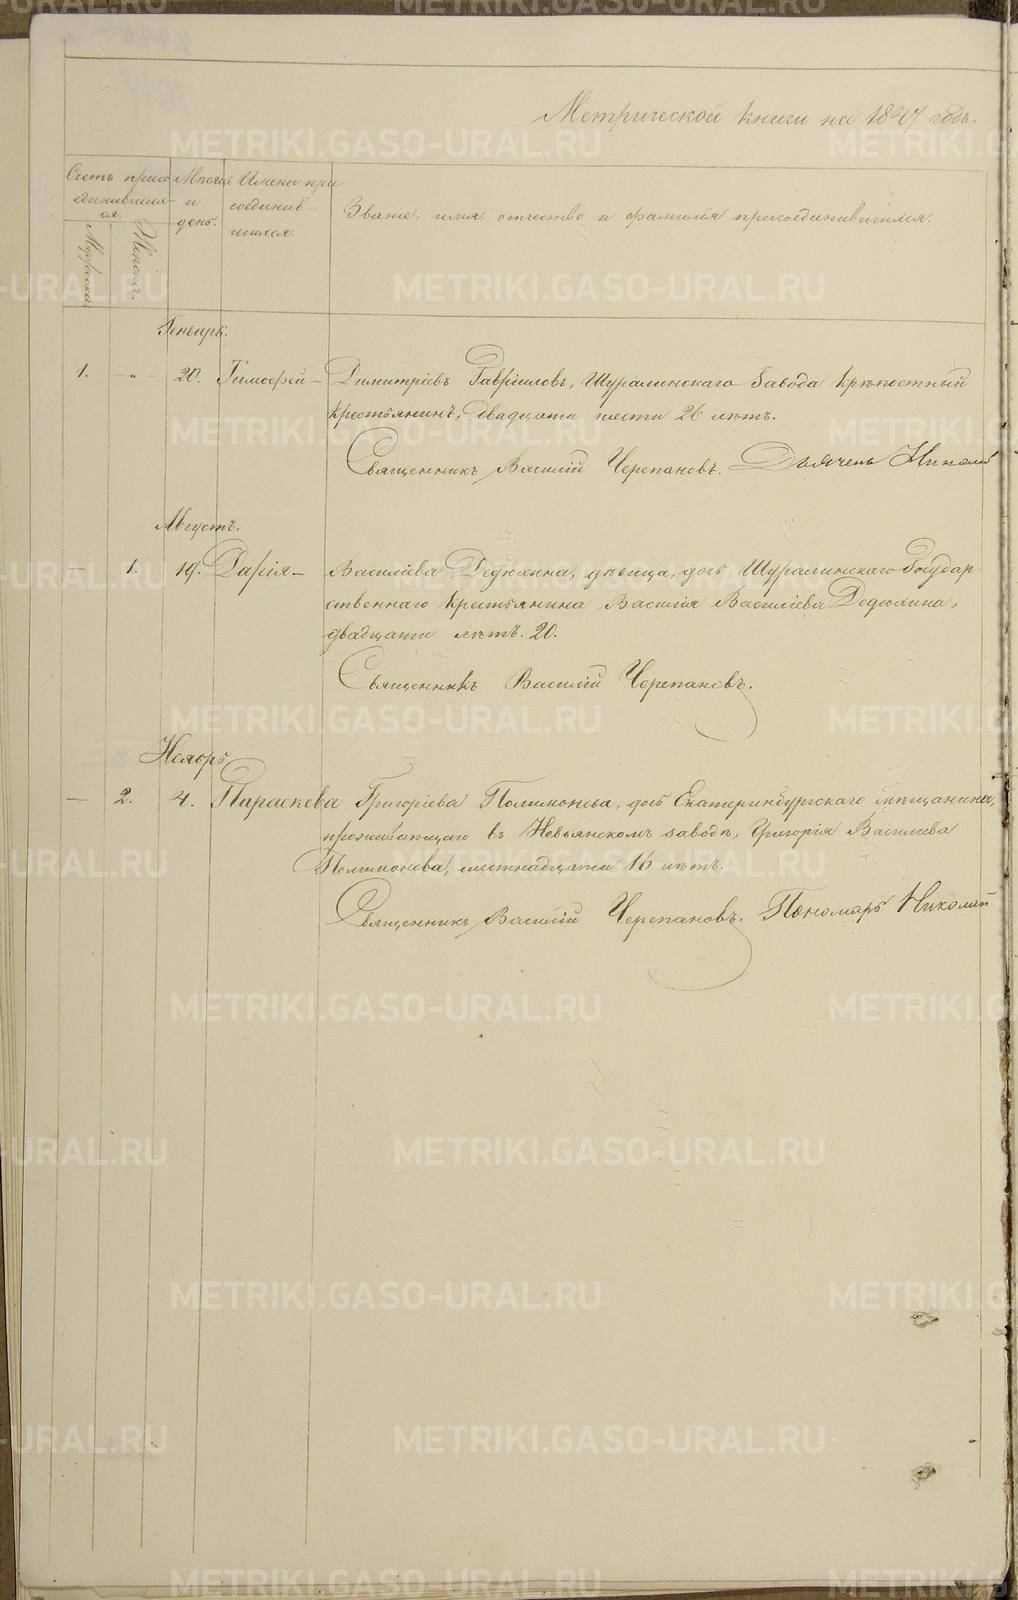 Метрической книги на 1847 годъ.
Счетъ присо
единивших
ся.
Мужеска.
Женска.
Месяцъ
и
день.
Имена при
соединив-
шихся.
Званіе, имя, отчество и фамилія присоединившихся.
Генварь.
1. — „ — 20. Тимофей — Димитріевъ Гавриловъ, Шуралинскаго Завода Крѣпостный
крестьянинъ, двадцати шести 26 лѣтъ.
Священникъ Василій Черепановъ. Дьячекъ Николай
Августъ.
— 1. 19. Дарія — Василіева Дедюхина, дѣвица, дочь Шуралинскаго Государ
ственнаго крестьянина Василія Василіева Дедюхина,
двадцати лѣтъ. 20.
Священникъ Василій Черепановъ.
Ноябрь
— 2. 4. Параскева Григоріева Полимонова, дочь Екатеринбургскаго мѣщанина,
проживающаго въ Невьянскомъ заводѣ, Григорія Василіева
Полимонова, шестнадцати 16 лѣтъ.
Священникъ Василій Черепановъ. Пономарь Николай
METRIKI.GASO-URAL.RU